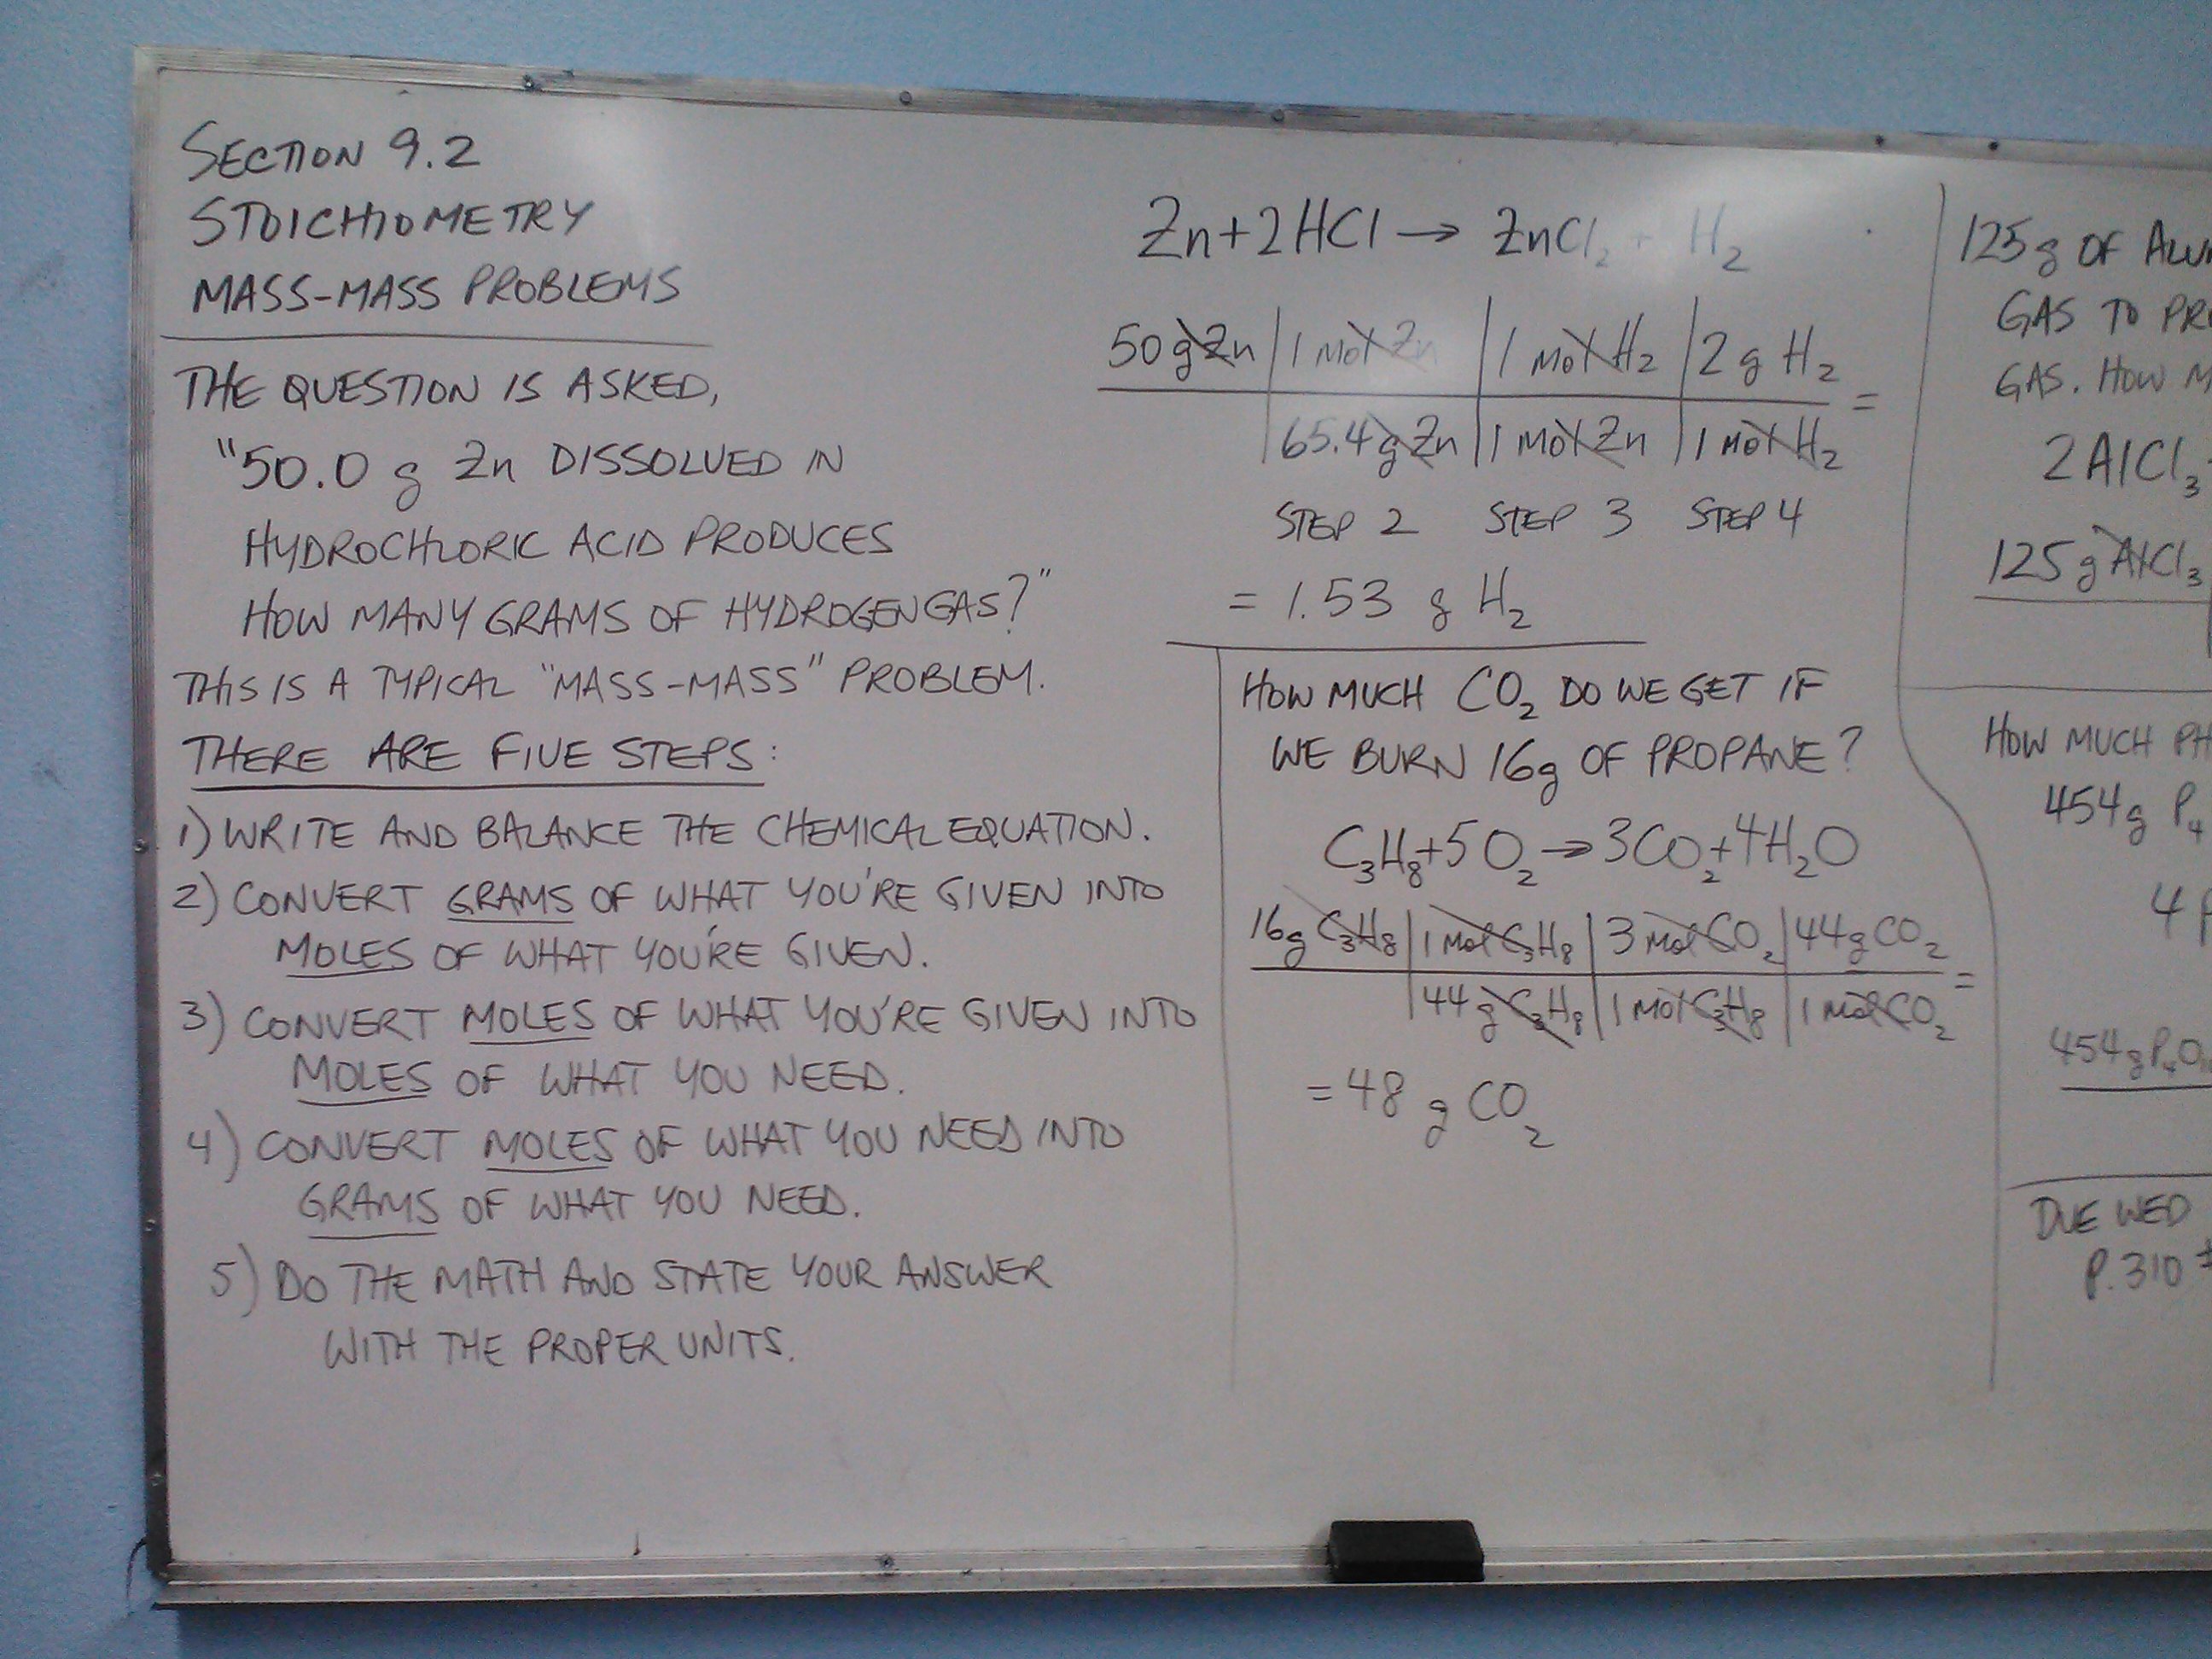 SECTION 9.2
STOICHIOMETRY
MASS-MASS PROBLEMS
THE QUESTION IS ASKED,
"50.0 g Zn DISSOLVED IN
HYDROCHLORIC ACID PRODUCES
HOW MANY GRAMS OF HYDROGEN GAS?"
THIS IS A TYPICAL "MASS-MASS" PROBLEM.
THERE ARE FIVE STEPS:
1) WRITE AND BALANCE THE CHEMICAL EQUATION.
2) CONVERT GRAMS OF WHAT YOU'RE GIVEN INTO
MOLES OF WHAT YOU'RE GIVEN.
3) CONVERT MOLES OF WHAT YOU'RE GIVEN INTO
MOLES OF WHAT YOU NEED.
4) CONVERT MOLES OF WHAT YOU NEED INTO
GRAMS OF WHAT YOU NEED.
5) DO THE MATH AND STATE YOUR ANSWER
WITH THE PROPER UNITS.
Zn + 2HCl → ZnCl₂ + H₂
50 g Zn | 1 mol Zn | 1 mol H₂ | 2 g H₂ =
65.4 g Zn | 1 mol Zn | 1 mol H₂
STEP 2 STEP 3 STEP 4
= 1.53 g H₂
HOW MUCH CO₂ DO WE GET IF
WE BURN 16g OF PROPANE?
C₃H₈ + 5O₂ → 3CO₂ + 4H₂O
16g C₃H₈ | 1 mol C₃H₈ | 3 mol CO₂ | 44g CO₂ =
44 g C₃H₈ | 1 mol C₃H₈ | 1 mol CO₂
= 48 g CO₂
125g OF
GAS TO
GAS. HOW
2AlCl₃
125 g AlCl₃
HOW MUCH
454g P₄
4
454g P₄O
DUE WED
P. 310